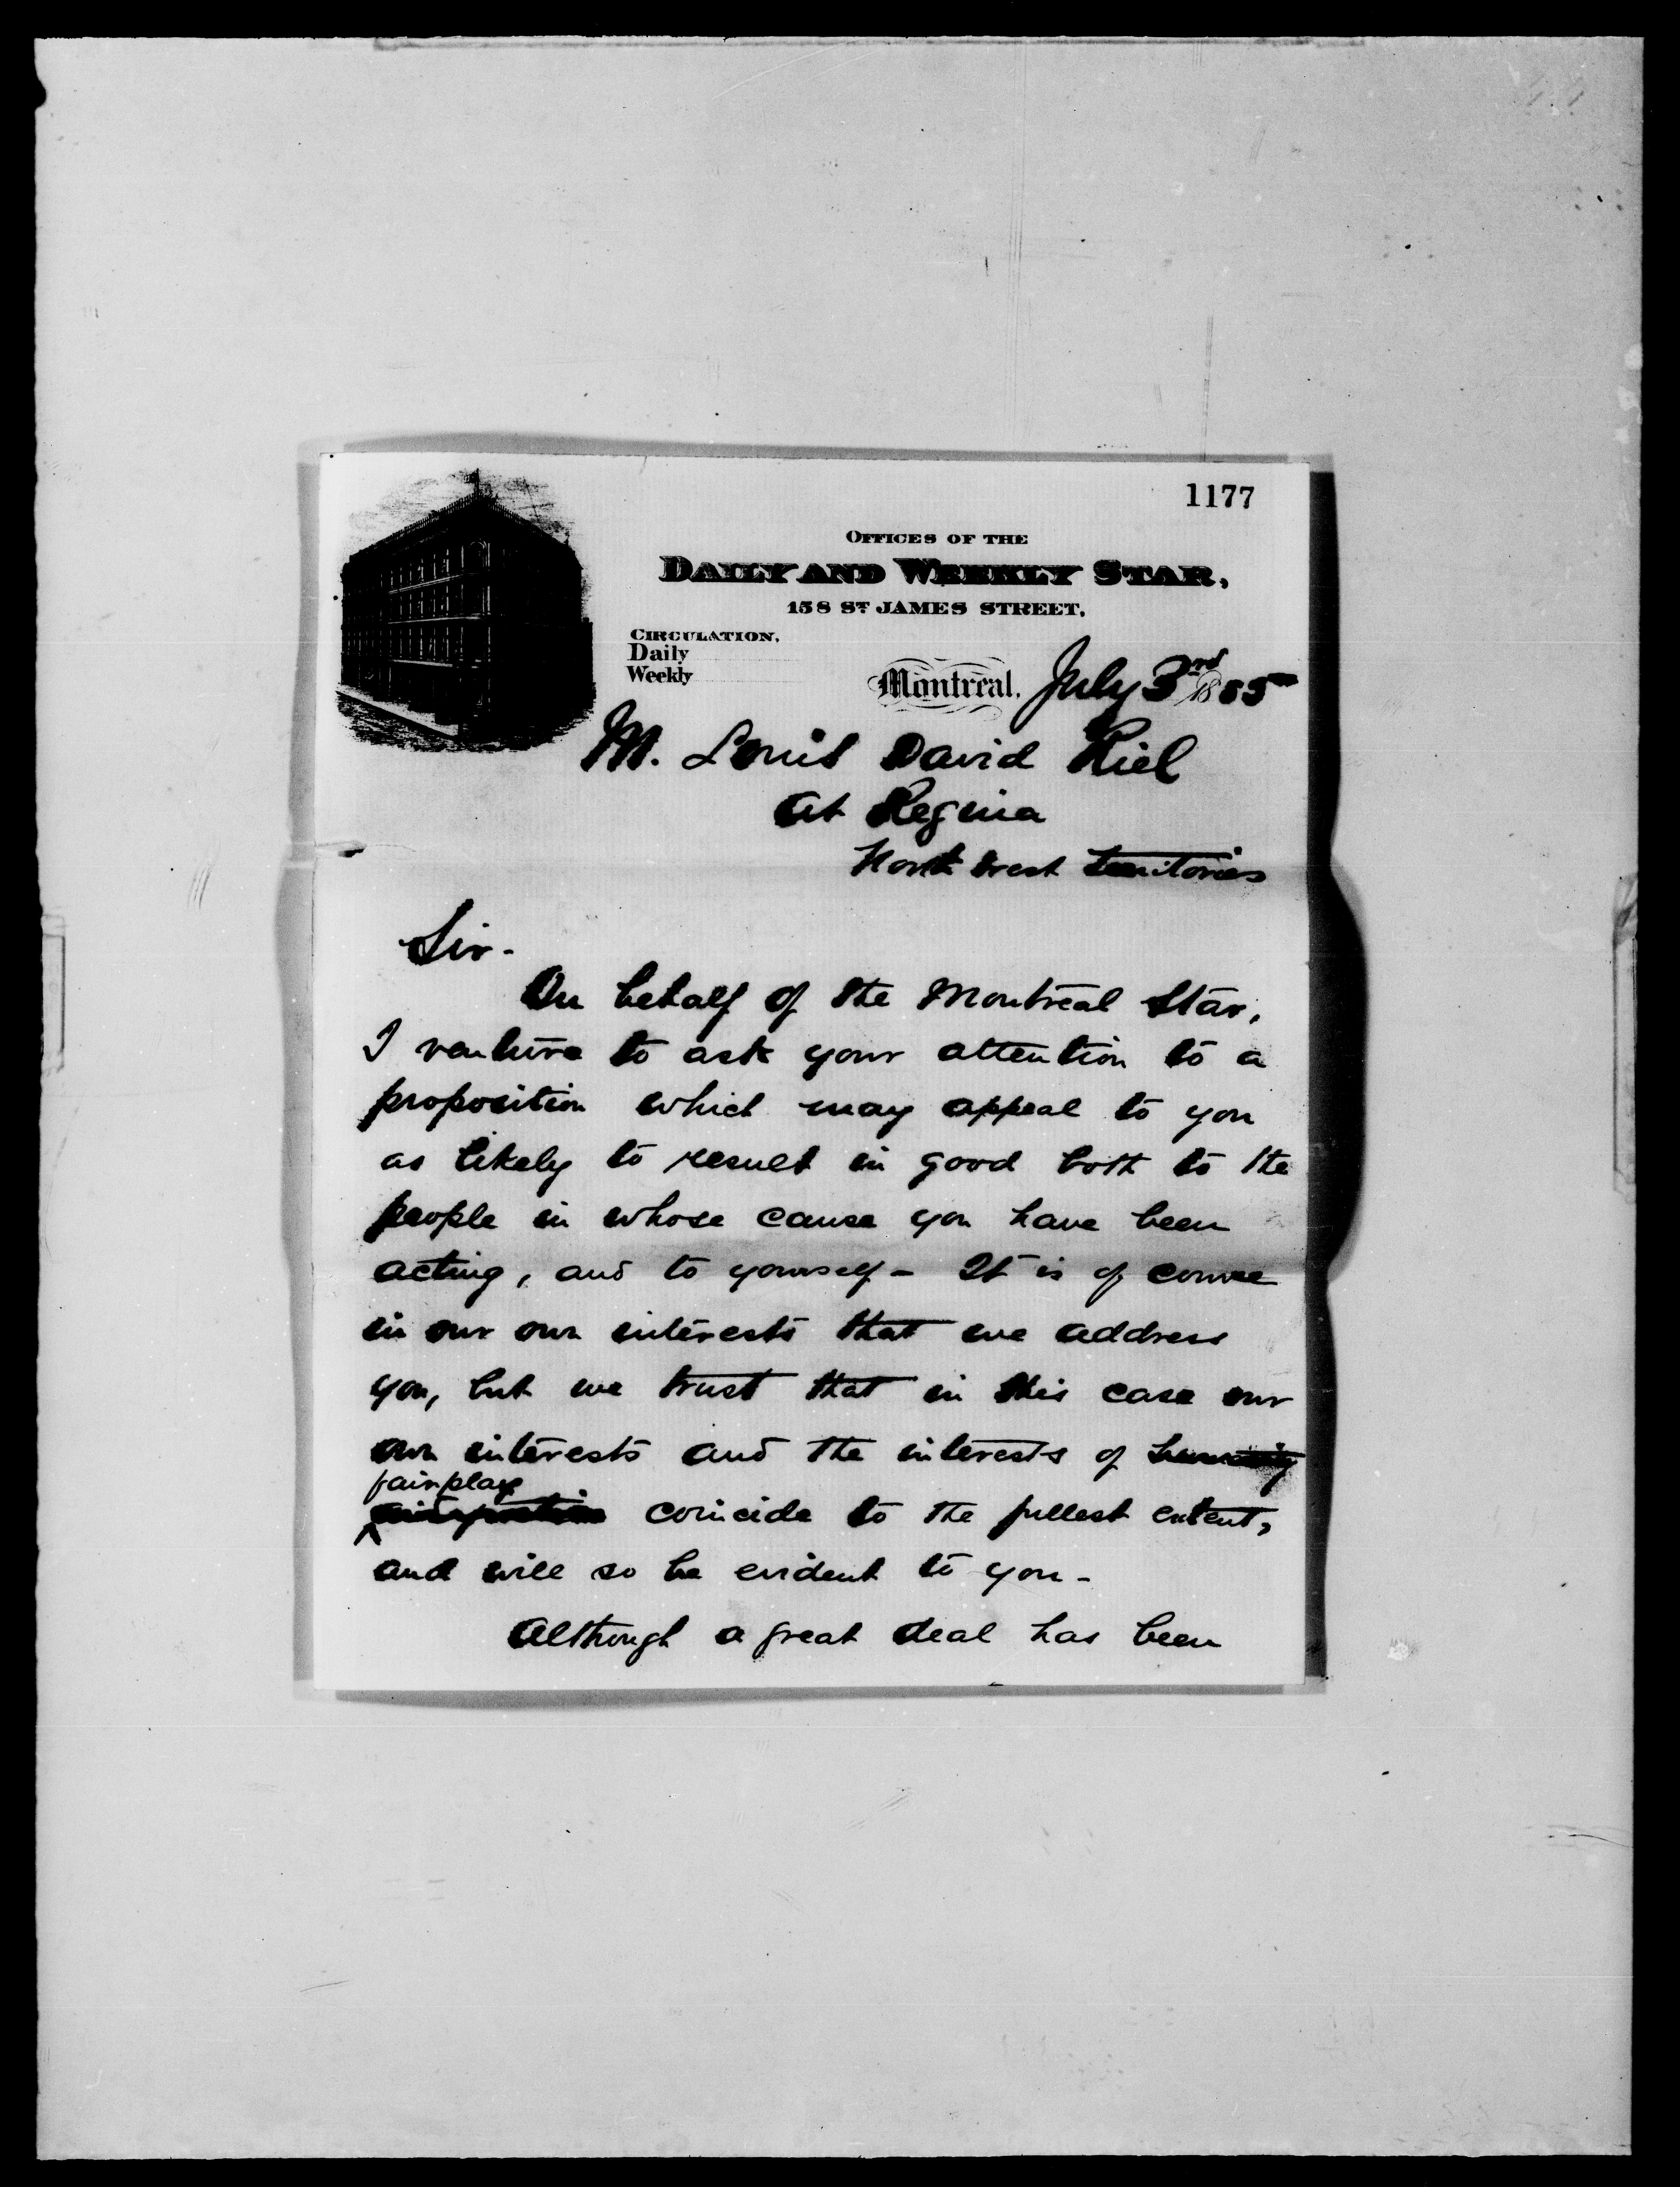 1177
OFFICES OF THE
DAILY AND WEEKLY STAR,
158 ST JAMES STREET,
CIRCULATION,
Daily
Weekly
Montreal, July 3rd 1885
M. Louis David Riel
At Regina
North West Territories
Sir-
On behalf of the Montreal Star,
I venture to ask your attention to a
proposition which may appeal to you
as likely to result in good both to the
people in whose cause you have been
acting, and to yourself - It is of course
in our own interests that we address
you, but we trust that in this case our
own interests and the interests of humanity
fairplay
coincide to the fullest extent,
and will so be evident to you -
Although a great deal has been